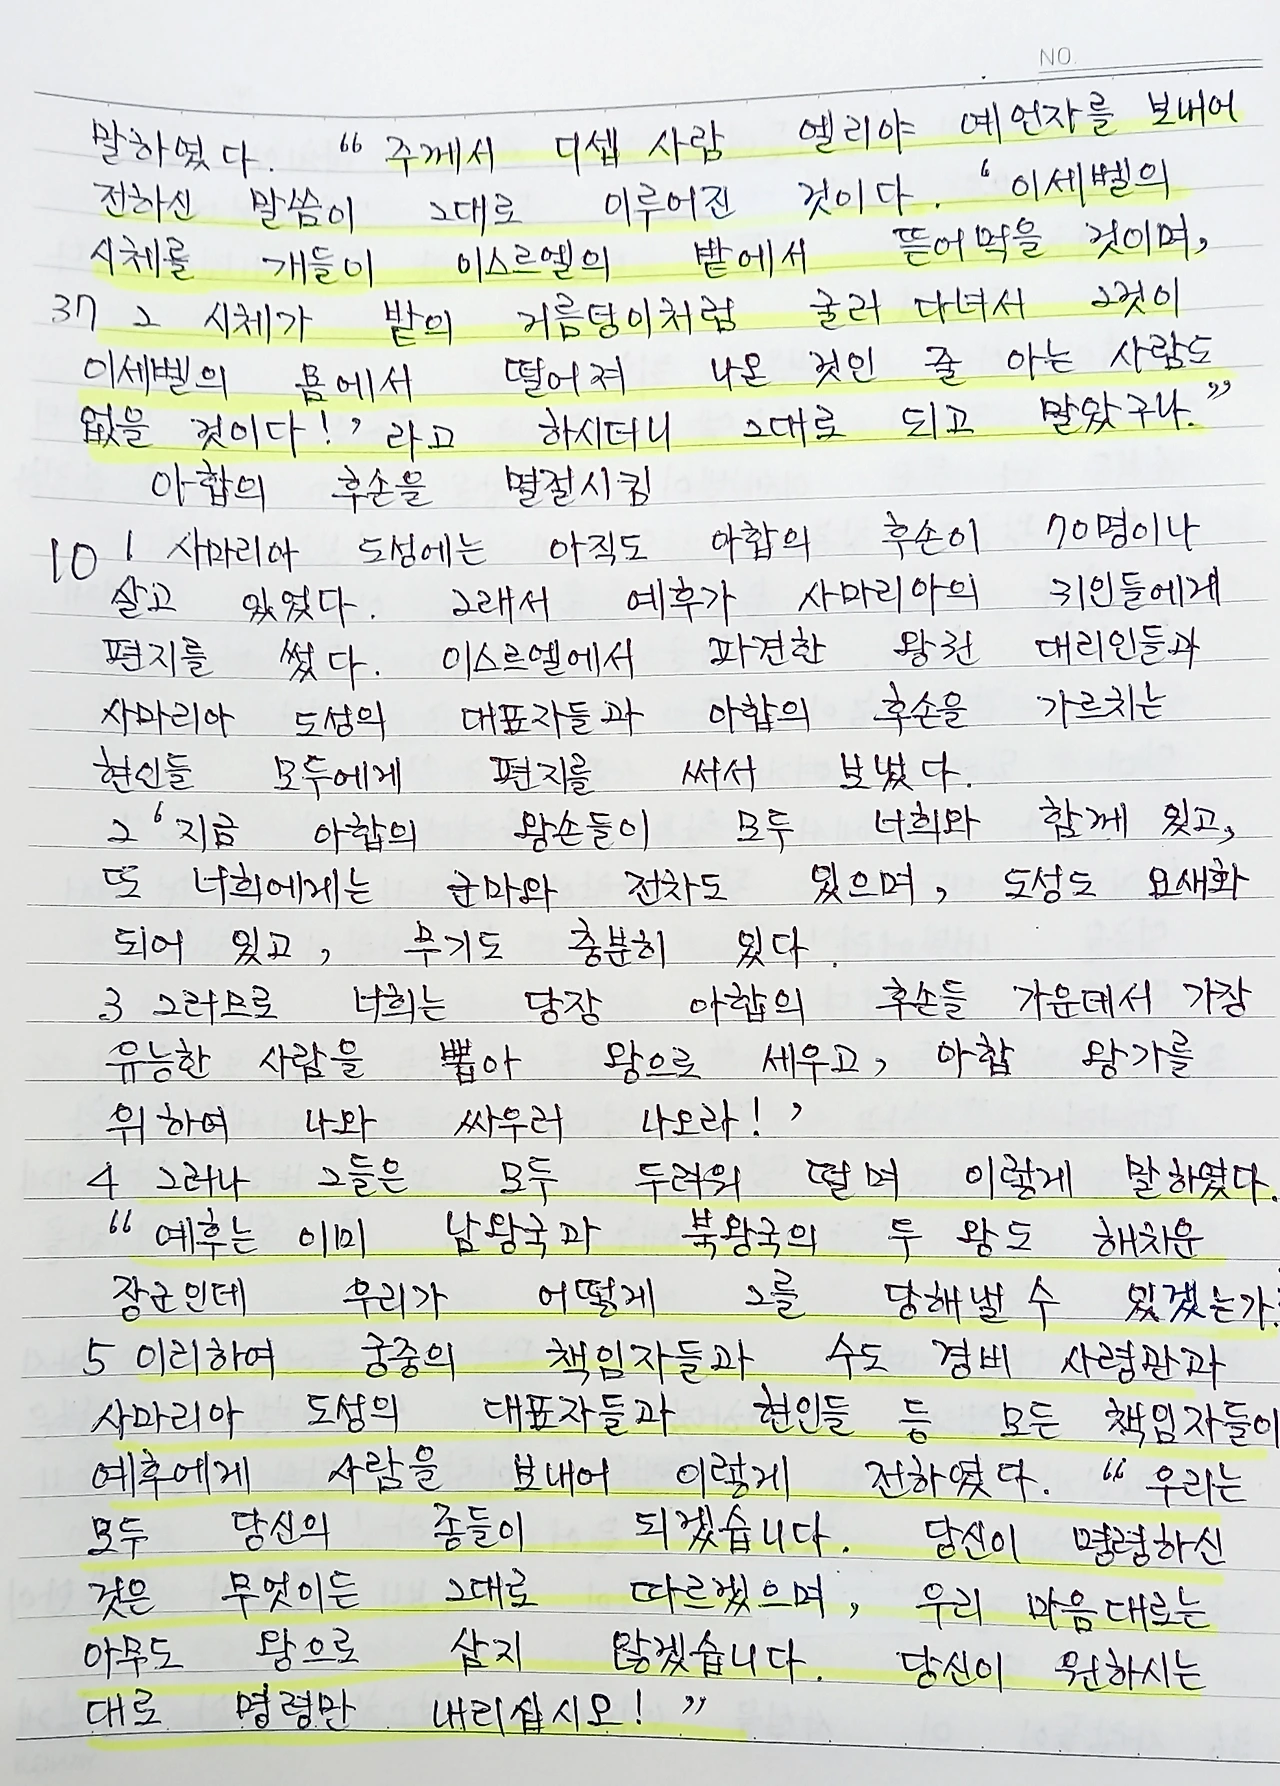 NO.
말하였다. “주께서 디셉 사람 엘리야 예언자를 보내어
전하신 말씀이 그대로 이루어진 것이다. ‘이세벨의
시체를 개들이 이스르엘의 밭에서 뜯어먹을 것이며,
37 그 시체가 밭의 거름덩이처럼 굴러 다녀서 그것이
이세벨의 몸에서 떨어져 나온 것인 줄 아는 사람도
없을 것이다!’ 라고 하시더니 그대로 되고 말았구나.”
아합의 후손을 멸절시킴
10 1 사마리아 도성에는 아직도 아합의 후손이 70명이나
살고 있었다. 그래서 예후가 사마리아의 귀인들에게
편지를 썼다. 이스르엘에서 파견한 왕권 대리인들과
사마리아 도성의 대표자들과 아합의 후손을 가르치는
현인들 모두에게 편지를 써서 보냈다.
2 ‘지금 아합의 왕손들이 모두 너희와 함께 있고,
또 너희에게는 군마와 전차도 있으며, 도성도 요새화
되어 있고, 무기도 충분히 있다.
3 그러므로 너희는 당장 아합의 후손들 가운데서 가장
유능한 사람을 뽑아 왕으로 세우고, 아합 왕가를
위하여 나와 싸우러 나오라!’
4 그러나 그들은 모두 두려워 떨며 이렇게 말하였다.
“예후는 이미 남왕국과 북왕국의 두 왕도 해치운
장군인데 우리가 어떻게 그를 당해낼 수 있겠는가?
5 이리하여 궁중의 책임자들과 수도 경비 사령관과
사마리아 도성의 대표자들과 현인들 등 모든 책임자들이
예후에게 사람을 보내어 이렇게 전하였다. “우리는
모두 당신의 종들이 되겠습니다. 당신이 명령하신
것은 무엇이든 그대로 따르겠으며, 우리 마음대로는
아무도 왕으로 삼지 않겠습니다. 당신이 원하시는
대로 명령만 내리십시오!”